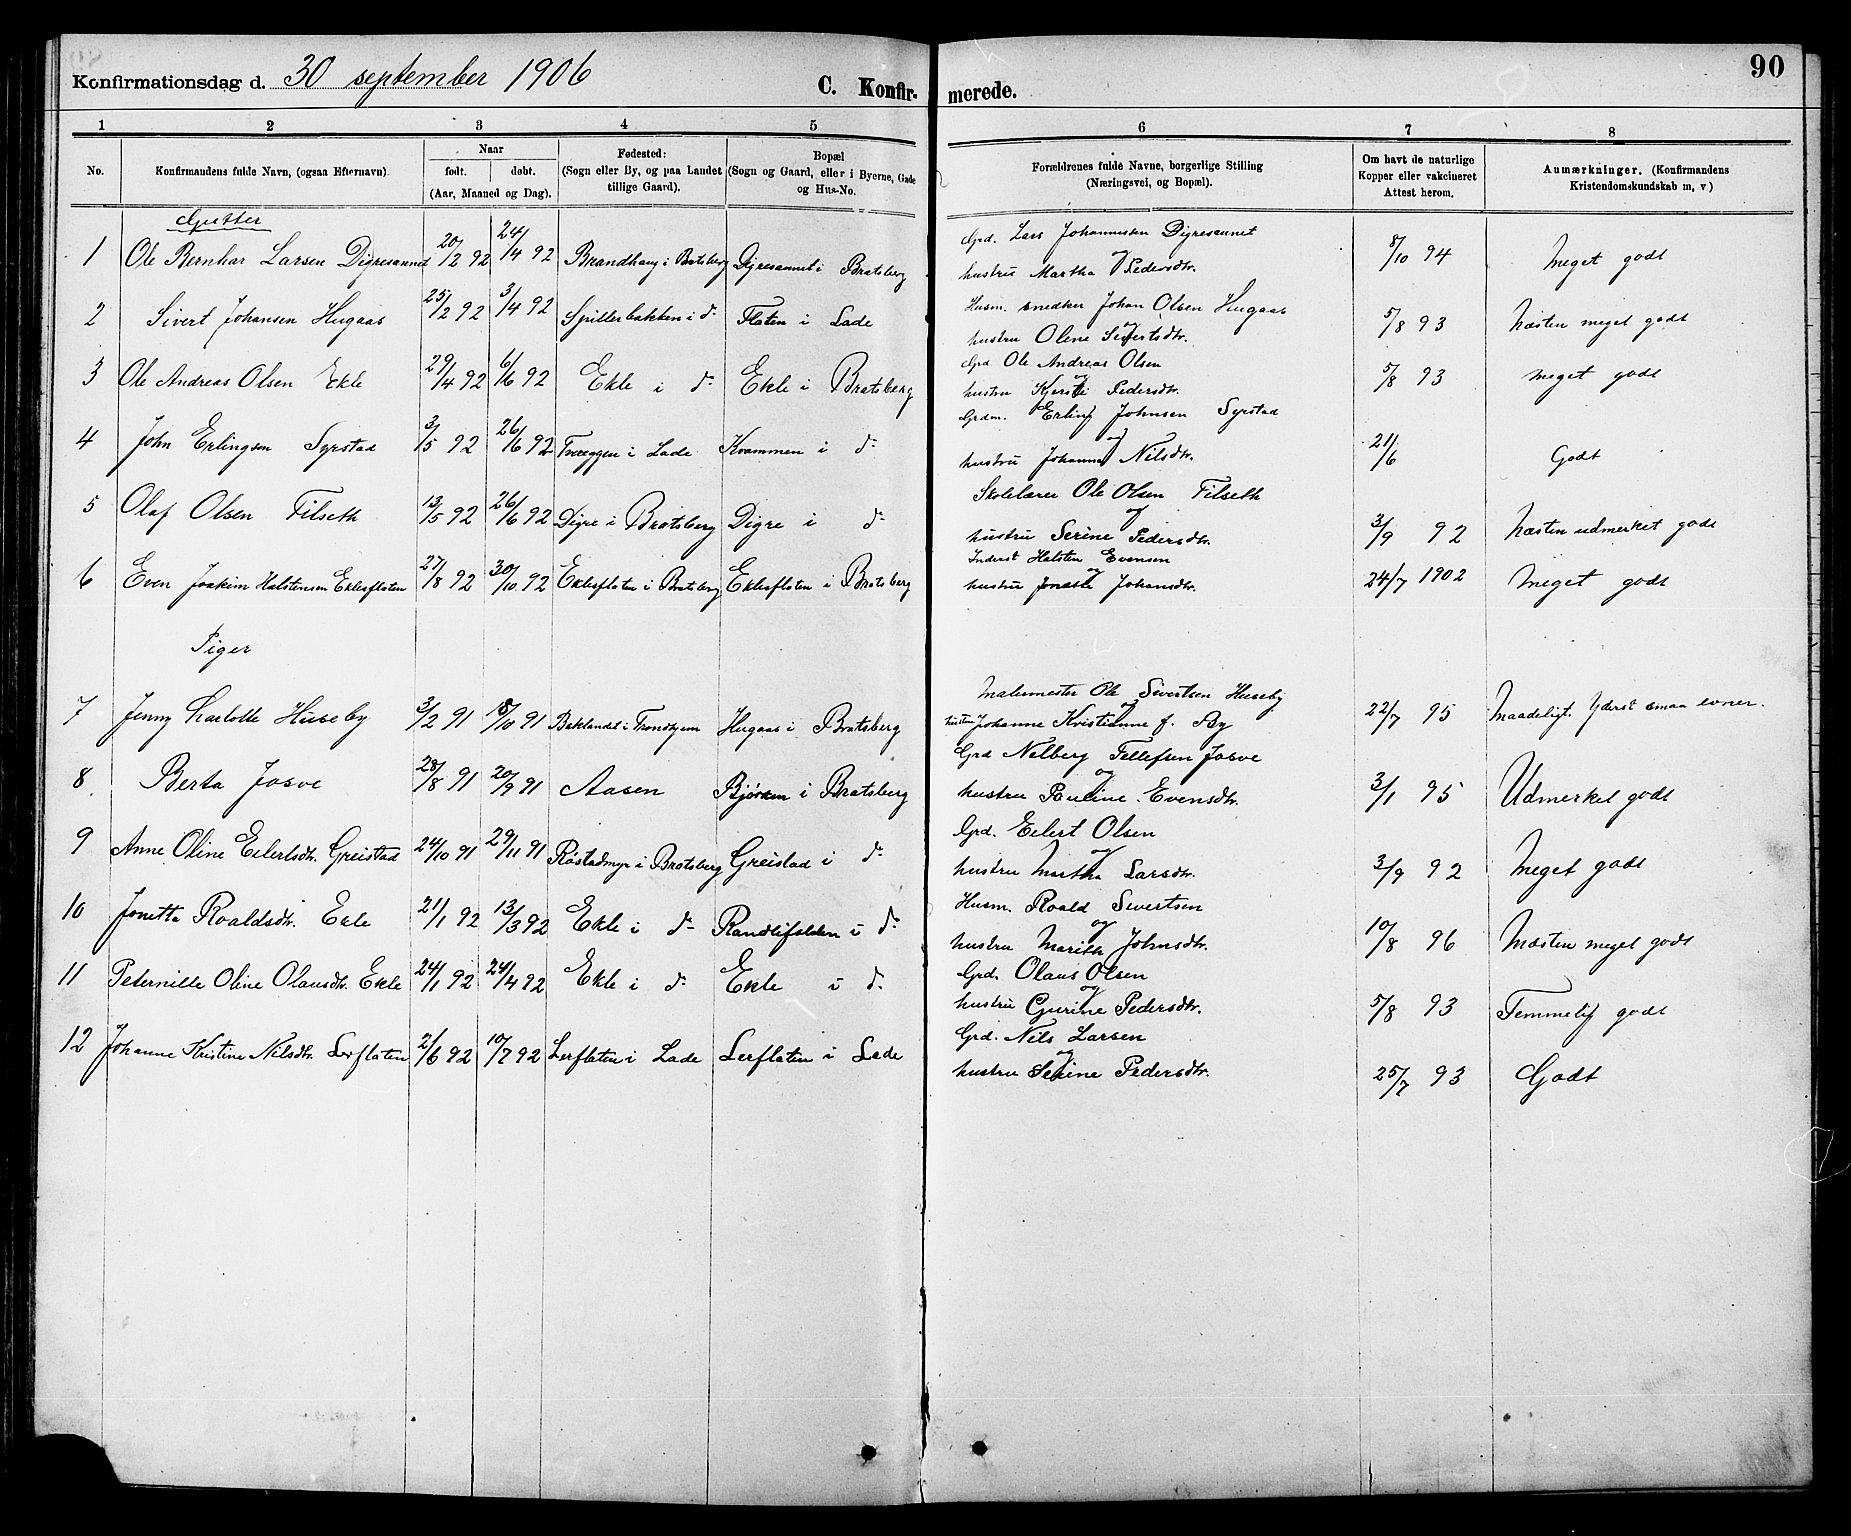 90
Konfirmationsdag d. 30 september 1906 C. Konfirmerede.
1 2 3 4 5 6 7 8
No. Konfirmandens fulde Navn, (ogsaa Efternavn). Naar født. døbt. (Aar, Maaned og Dag). Fødested: (Sogn eller By, og paa Landet tillige Gaard). Bopæl (Sogn og Gaard, eller i Byerne, Gade og Hus-No. Forældrenes fulde Navne, borgerlige Stilling (Næringsvei, og Bopæl). Om havt de naturlige Kopper eller vakcineret Attest herom. Anmærkninger. (Konfirmandens Kristendomskundskab m, v)
Gutter
1 Ole Bernhar Larsen Digresannet 20/2 92 24/4 92 Brandhaug i Bratsberg Digresannet i Bratsberg Grd. Lars Johannesen Digresannet og hustru Martha Pedersdtr. 8/10 94 Meget godt
2 Sivert Johansen Hugaas 25/2 92 3/4 92 Spillerbakken i do Flaten i Lade Husm. snedker Johan Olsen Hugaas og hustru Oline Sivertsdtr. 5/8 93 Næsten meget godt
3 Ole Andreas Olsen Ekle 29/4 92 6/6 92 Ekle i do Ekle i Bratsberg Grd Ole Andreas Olsen og hustru Kjersti Pedersdtr. 5/8 93 Meget godt
4 John Erlingsen Syrstad 3/5 92 26/6 92 Tvereggen i Lade Kvammen i do Grdm. Erling Johnsen Syrstad og hustru Johanna Nilsdtr. 21/6 Godt
5 Olaf Olsen Filseth 13/5 92 26/6 92 Digre i Bratsberg Digre i do Skolelærer Ole Olsen Filseth og hustru Serine Pedersdtr. 3/9 92 Næsten udmerket godt
6 Even Joakim Halstensen Eklesflaten 27/8 92 30/10 92 Eklesflaten i Bratsberg Eklesflaten i Bratsberg Inderst Halsten Evensen og hustru Jonetta Johansdtr. 24/7 1902 Meget godt
Piger
7 Jenny Karlotte Huseby 3/2 91 18/10 91 Baklandet i Trondhjem Hugaas i Bratsberg Malermester Ole Sivertsen Huseby og hustru Johanne Kristianne f. By 22/7 95 Maadeligt. Yderst smaa evner.
8 Berta Josve 28/8 91 20/9 91 Aasen Bjørken i Bratsberg Grd Nelberg Tellefsen Josve og hustru Pauline Evensdtr. 3/1 95 Udmerket godt
9 Anne Oline Eilertsdtr. Greistad 24/10 91 29/11 91 Røstadmyr i Bratsberg Greistad i do Grd. Eilert Olsen og hustru Martha Larsdtr. 3/9 92 Meget godt
10 Jonetta Roaldsdtr. Ekle 21/1 92 13/3 92 Ekle i do Randlifalden i do Husm. Roald Sivertsen og hustru Marith Johnsdtr. 10/8 96 Næsten meget godt
11 Peternille Oline Olausdtr. Ekle 24/1 92 24/4 92 Ekle i do Ekle i do Grd. Olaus Olsen og hustru Gurine Pedersdtr. 5/8 93 Temmelig godt
12 Johanne Kristine Nilsdtr. Lerflaten 2/6 92 10/7 92 Lerflaten i Lade Lerflaten i Lade Grd. Nils Larsen og hustru Serine Pedersdtr. 25/7 93 Godt